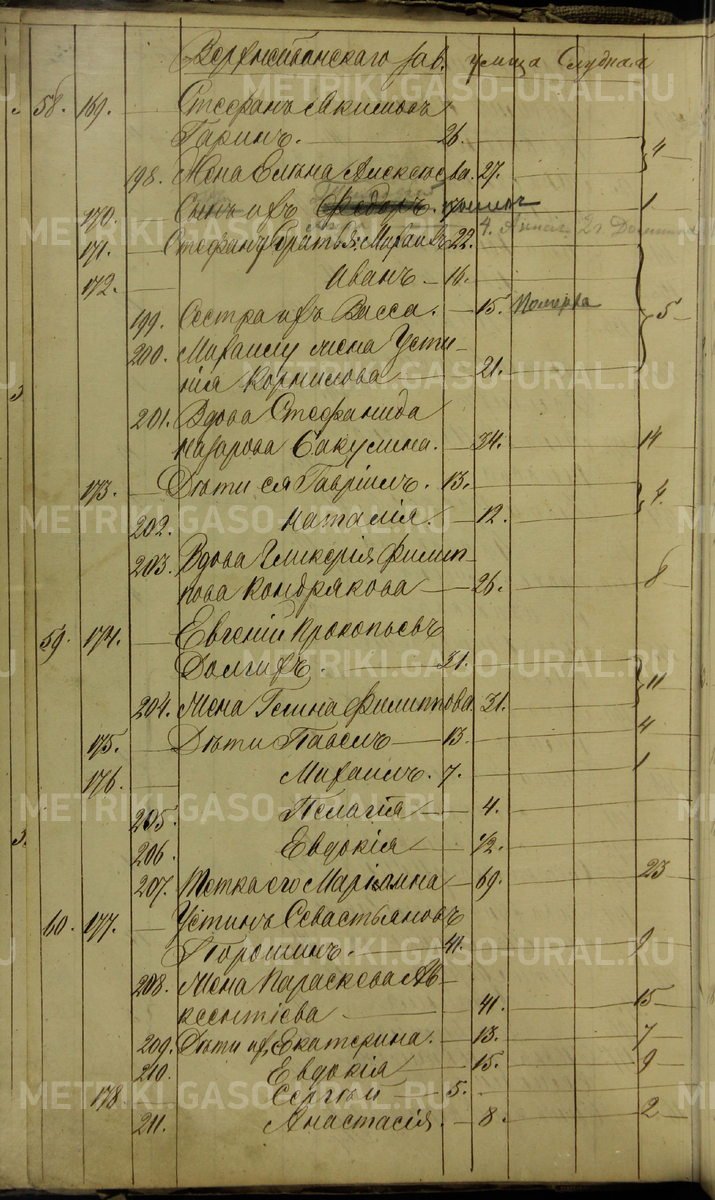 Верхнейвинскаго зав. улица Слудная
58. 169. Стефанъ Акимовъ
Гаринъ. 26. 4
198. Жена Елена Алексѣева. 27.
170. Сынъ ихъ Федоръ. 1
171. Стефану братья: Михаилъ 22. 4.
172. Иванъ 16.
199. Сестра ихъ Васса. 15. померла 5
200. Михаилу жена Усти-
нія Корнилова 21.
201. Вдова Стефанида
Назарова Бакулина. 34. 14
173. Дѣти ея Гавріилъ. 13.
202. Наталія. 12. 4.
203. Вдова Гликерія Филип-
пова Кондрякова 26. 8
59. 174. Евгеній Прокопьевъ
Долгихъ. 31.
204. Жена Галина Филиппова 31. 11
175. Дѣти Павелъ 13. 4
176. Михаилъ. 7. 1
205. Пелагія 4.
206. Евдокія 1/2.
207. Тетка его Маріамна 69. 23
60. 177. Устинъ Севастьяновъ
Порошинъ. 41. 9
208. Жена Параскева Ав-
ксентіева 41. 15
209. Дѣти ихъ Екатерина. 13. 7
210. Евдокія 15. 9
178. Сергѣй 5.
211. Анастасія. 8. 2
METRIKI.GASO-URAL.RU